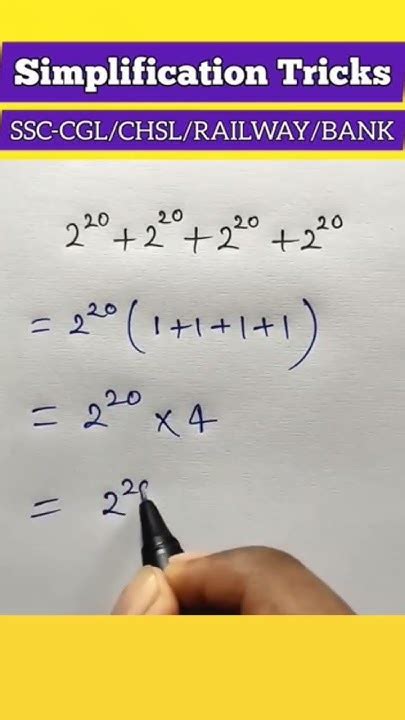 Simplification Tricks
SSC-CGL/CHSL/RAILWAY/BANK
2²⁰ + 2²⁰ + 2²⁰ + 2²⁰
= 2²⁰ (1+1+1+1)
= 2²⁰ × 4
= 2²⁰